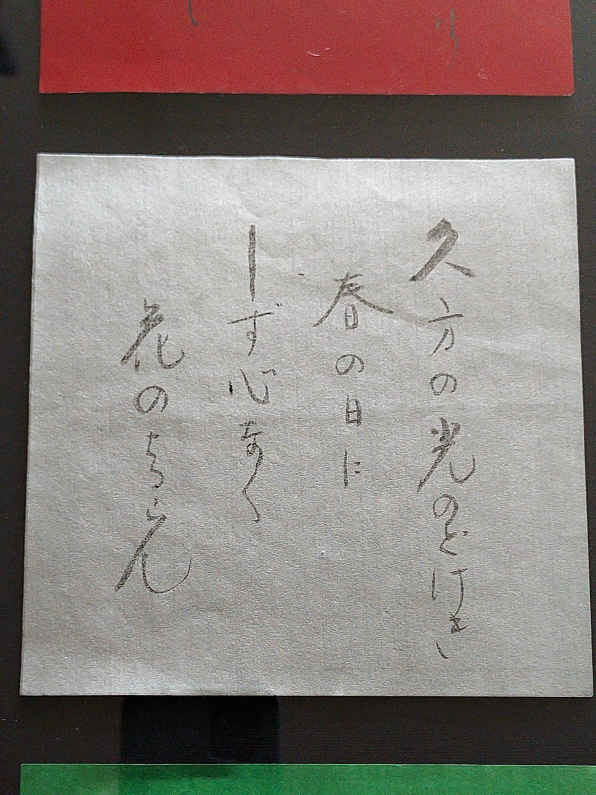 久方の光のどけき
春の日に
しず心なく
花のちらん